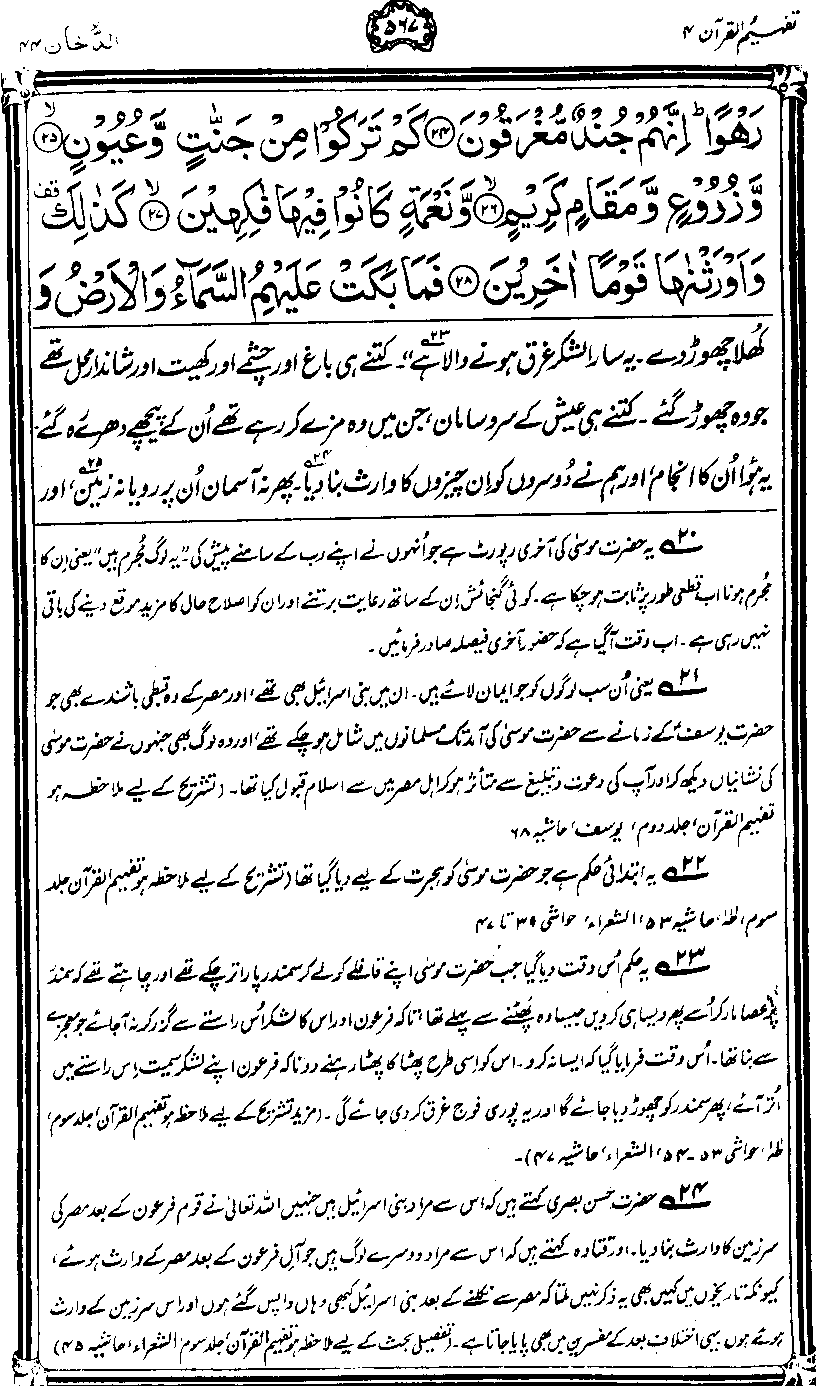 تفہیم القرآن ۴
۵۶۷
الدُّخان ۴۴
رَهْوًا ؕ اِنَّهُمْ جُنْدٌ مُّغْرَقُوْنَ ۝۲۴ كَمْ تَرَكُوْا مِنْ جَنّٰتٍ وَّعُيُوْنٍ ۝۲۵ۙ
وَّزُرُوْعٍ وَّمَقَامٍ كَرِيْمٍ ۝۲۶ۙ وَّنَعْمَةٍ كَانُوْا فِيْهَا فٰكِهِيْنَ ۝۲۷ۙ كَذٰلِكَ
وَاَوْرَثْنٰهَا قَوْمًا اٰخَرِيْنَ ۝۲۸ فَمَا بَكَتْ عَلَيْهِمُ السَّمَآءُ وَالْاَرْضُ وَ
کھُلا چھوڑ دے۔ یہ سارا لشکر غرق ہونے والا ہے۲۳"۔ کتنے ہی باغ اور چشمے اور کھیت اور شاندار محل تھے
جو وہ چھوڑ گئے۔ کتنے ہی عیش کے سروسامان، جن میں وہ مزے کر رہے تھے اُن کے پیچھے دھرے رہ گئے۔
یہ ہُوا اُن کا انجام، اور ہم نے دُوسروں کو اِن چیزوں کا وارث بنا دیا۲۴۔ پھر نہ آسمان اُن پر رویا نہ زمین۲۵، اور
۲۰ یہ حضرت موسیٰ کی آخری رپورٹ ہے جو اُنہوں نے اپنے رب کے سامنے پیش کی۔ "یہ لوگ مُجرم ہیں" یعنی اِن کا
مُجرم ہونا اب قطعی طور پر ثابت ہو چکا ہے۔ کوئی گنجائش اِن کے ساتھ رعایت برتنے اور ان کو اصلاحِ حال کا مزید موقع دینے کی باقی
نہیں رہی ہے۔ اب وقت آ گیا ہے کہ حضور آخری فیصلہ صادر فرمائیں۔
۲۱ یعنی اُن سب لوگوں کو جو ایمان لائے ہیں۔ ان میں بنی اسرائیل بھی تھے، اور مصر کے وہ قبطی باشندے بھی جو
حضرت یوسفؑ کے زمانے سے حضرت موسیٰ کی آمد تک مسلمانوں میں شامل ہو چکے تھے، اور وہ لوگ بھی جنہوں نے حضرت موسیٰ
کی نشانیاں دیکھ کر اور آپ کی دعوت و تبلیغ سے متأثر ہو کر اہل مصر میں سے اسلام قبول کیا تھا۔ (تشریح کے لیے ملاحظہ ہو
تفہیم القرآن، جلد دوم، یوسف، حاشیہ ۶۸
۲۲ یہ ابتدائی حکم ہے جو حضرت موسیٰ کو ہجرت کے لیے دیا گیا تھا (تشریح کے لیے ملاحظہ ہو تفہیم القرآن جلد
سوم، طٰہٰ، حاشیہ ۵۳، الشعراء، حواشی ۳۹ تا ۴۷
۲۳ یہ حکم اُس وقت دیا گیا جب حضرت موسیٰ اپنے قافلے کو لے کر سمندر پار اتر چکے تھے اور چاہتے تھے کہ سمندر
پر عصا مار کر اُسے پھر ویسا ہی کر دیں جیسا وہ پھٹنے سے پہلے تھا، تاکہ فرعون اور اس کا لشکر اُس راستے سے گزر کر نہ آ جائے جو معجزے
سے بنا تھا۔ اُس وقت فرمایا گیا کہ ایسا نہ کرو۔ اس کو اسی طرح پھٹا کا پھٹا رہنے دو تاکہ فرعون اپنے لشکر سمیت اِس راستے میں
اُتر آئے، پھر سمندر کو چھوڑ دیا جائے گا اور یہ پوری فوج غرق کر دی جائے گی۔ (مزید تشریح کے لیے ملاحظہ ہو تفہیم القرآن، جلد سوم،
طٰہٰ، حواشی ۵۳-۵۴، الشعراء، حاشیہ ۴۷)۔
۲۴ حضرت حسن بصری کہتے ہیں کہ اس سے مراد بنی اسرائیل ہیں جنہیں اللہ تعالیٰ نے قوم فرعون کے بعد مصر کی
سرزمین کا وارث بنا دیا۔ اور قتادہ کہتے ہیں کہ اس سے مراد دوسرے لوگ ہیں جو آل فرعون کے بعد مصر کے وارث ہوئے،
کیونکہ تاریخوں میں کہیں بھی یہ ذکر نہیں ملتا کہ مصر سے نکلنے کے بعد بنی اسرائیل کبھی وہاں واپس گئے ہوں اور اس سرزمین کے وارث
ہوئے ہوں یہی اختلاف بعد کے مفسرین میں بھی پایا جاتا ہے۔ (تفصیلی بحث کے لیے ملاحظہ ہو تفہیم القرآن، جلد سوم الشعراء، حاشیہ ۴۵)